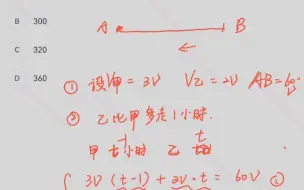 B 300
A B
C 320
←
D 360
① 设V甲=3V V乙=2V AB=60V
② 乙比甲多走1小时.
t-1 t
甲 小时 乙
{ 3V(t-1)+2V·t=60V ①